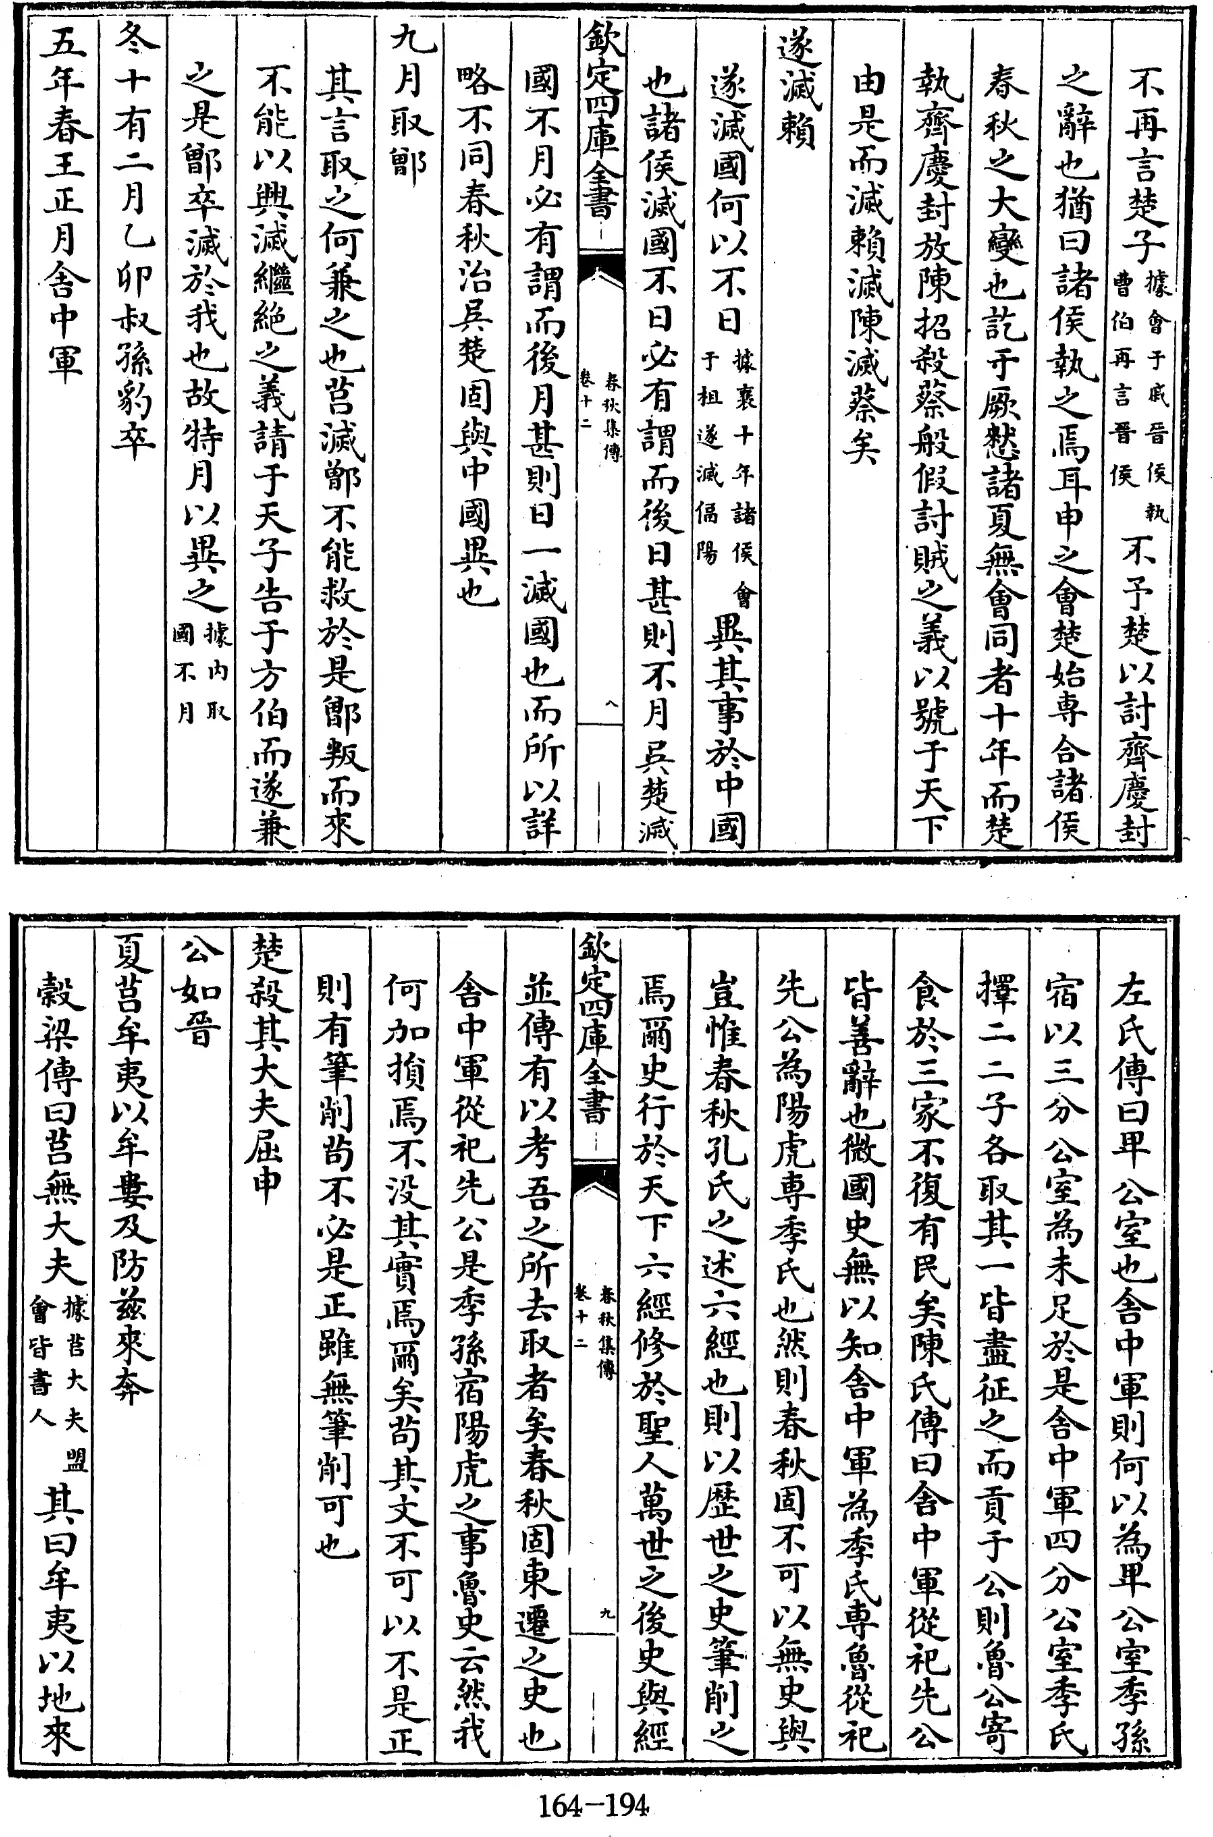 不再言楚子據會于戚晉侯執曹伯再言晉侯不予楚以討齊慶封
之辭也猶曰諸侯執之焉耳申之會楚始専合諸侯
春秋之大變也訖于厥憖諸夏無會同者十年而楚
執齊慶封放陳招殺蔡般假討賊之義以號于天下
由是而滅賴滅陳滅蔡矣
遂滅賴
遂滅國何以不日據襄十年諸侯會于柤遂滅偪陽異其事於中國
也諸侯滅國不日必有謂而後日甚則不月吳楚滅
欽定四庫全書
春秋集傳
卷十二
八
國不月必有謂而後月甚則日一滅國也而所以詳
略不同春秋治吳楚固與中國異也
九月取鄫
其言取之何兼之也莒滅鄫不能救於是鄫叛而來
不能以興滅繼絶之義請于天子告于方伯而遂兼
之是鄫卒滅於我也故特月以異之據内取國不月
冬十有二月乙卯叔孫豹卒
五年春王正月舍中軍
左氏傳曰卑公室也舍中軍則何以為卑公室季孫
宿以三分公室為未足於是舍中軍四分公室季氏
擇二二子各取其一皆盡征之而貢于公則魯公寄
食於三家不復有民矣陳氏傳曰舍中軍從祀先公
皆善辭也微國史無以知舍中軍為季氏専魯從祀
先公為陽虎専季氏也然則春秋固不可以無史與
豈惟春秋孔氏之述六經也則以歴世之史筆削之
焉爾史行於天下六經修於聖人萬世之後史與經
欽定四庫全書
春秋集傳
卷十二
九
並傳有以考吾之所去取者矣春秋固東遷之史也
舍中軍從祀先公是季孫宿陽虎之事魯史云然我
何加損焉不沒其實焉爾矣苟其文不可以不是正
則有筆削苟不必是正雖無筆削可也
楚殺其大夫屈申
公如晉
夏莒牟夷以牟婁及防茲來奔
榖梁傳曰莒無大夫據莒大夫盟會皆書人其曰牟夷以地來
164-194